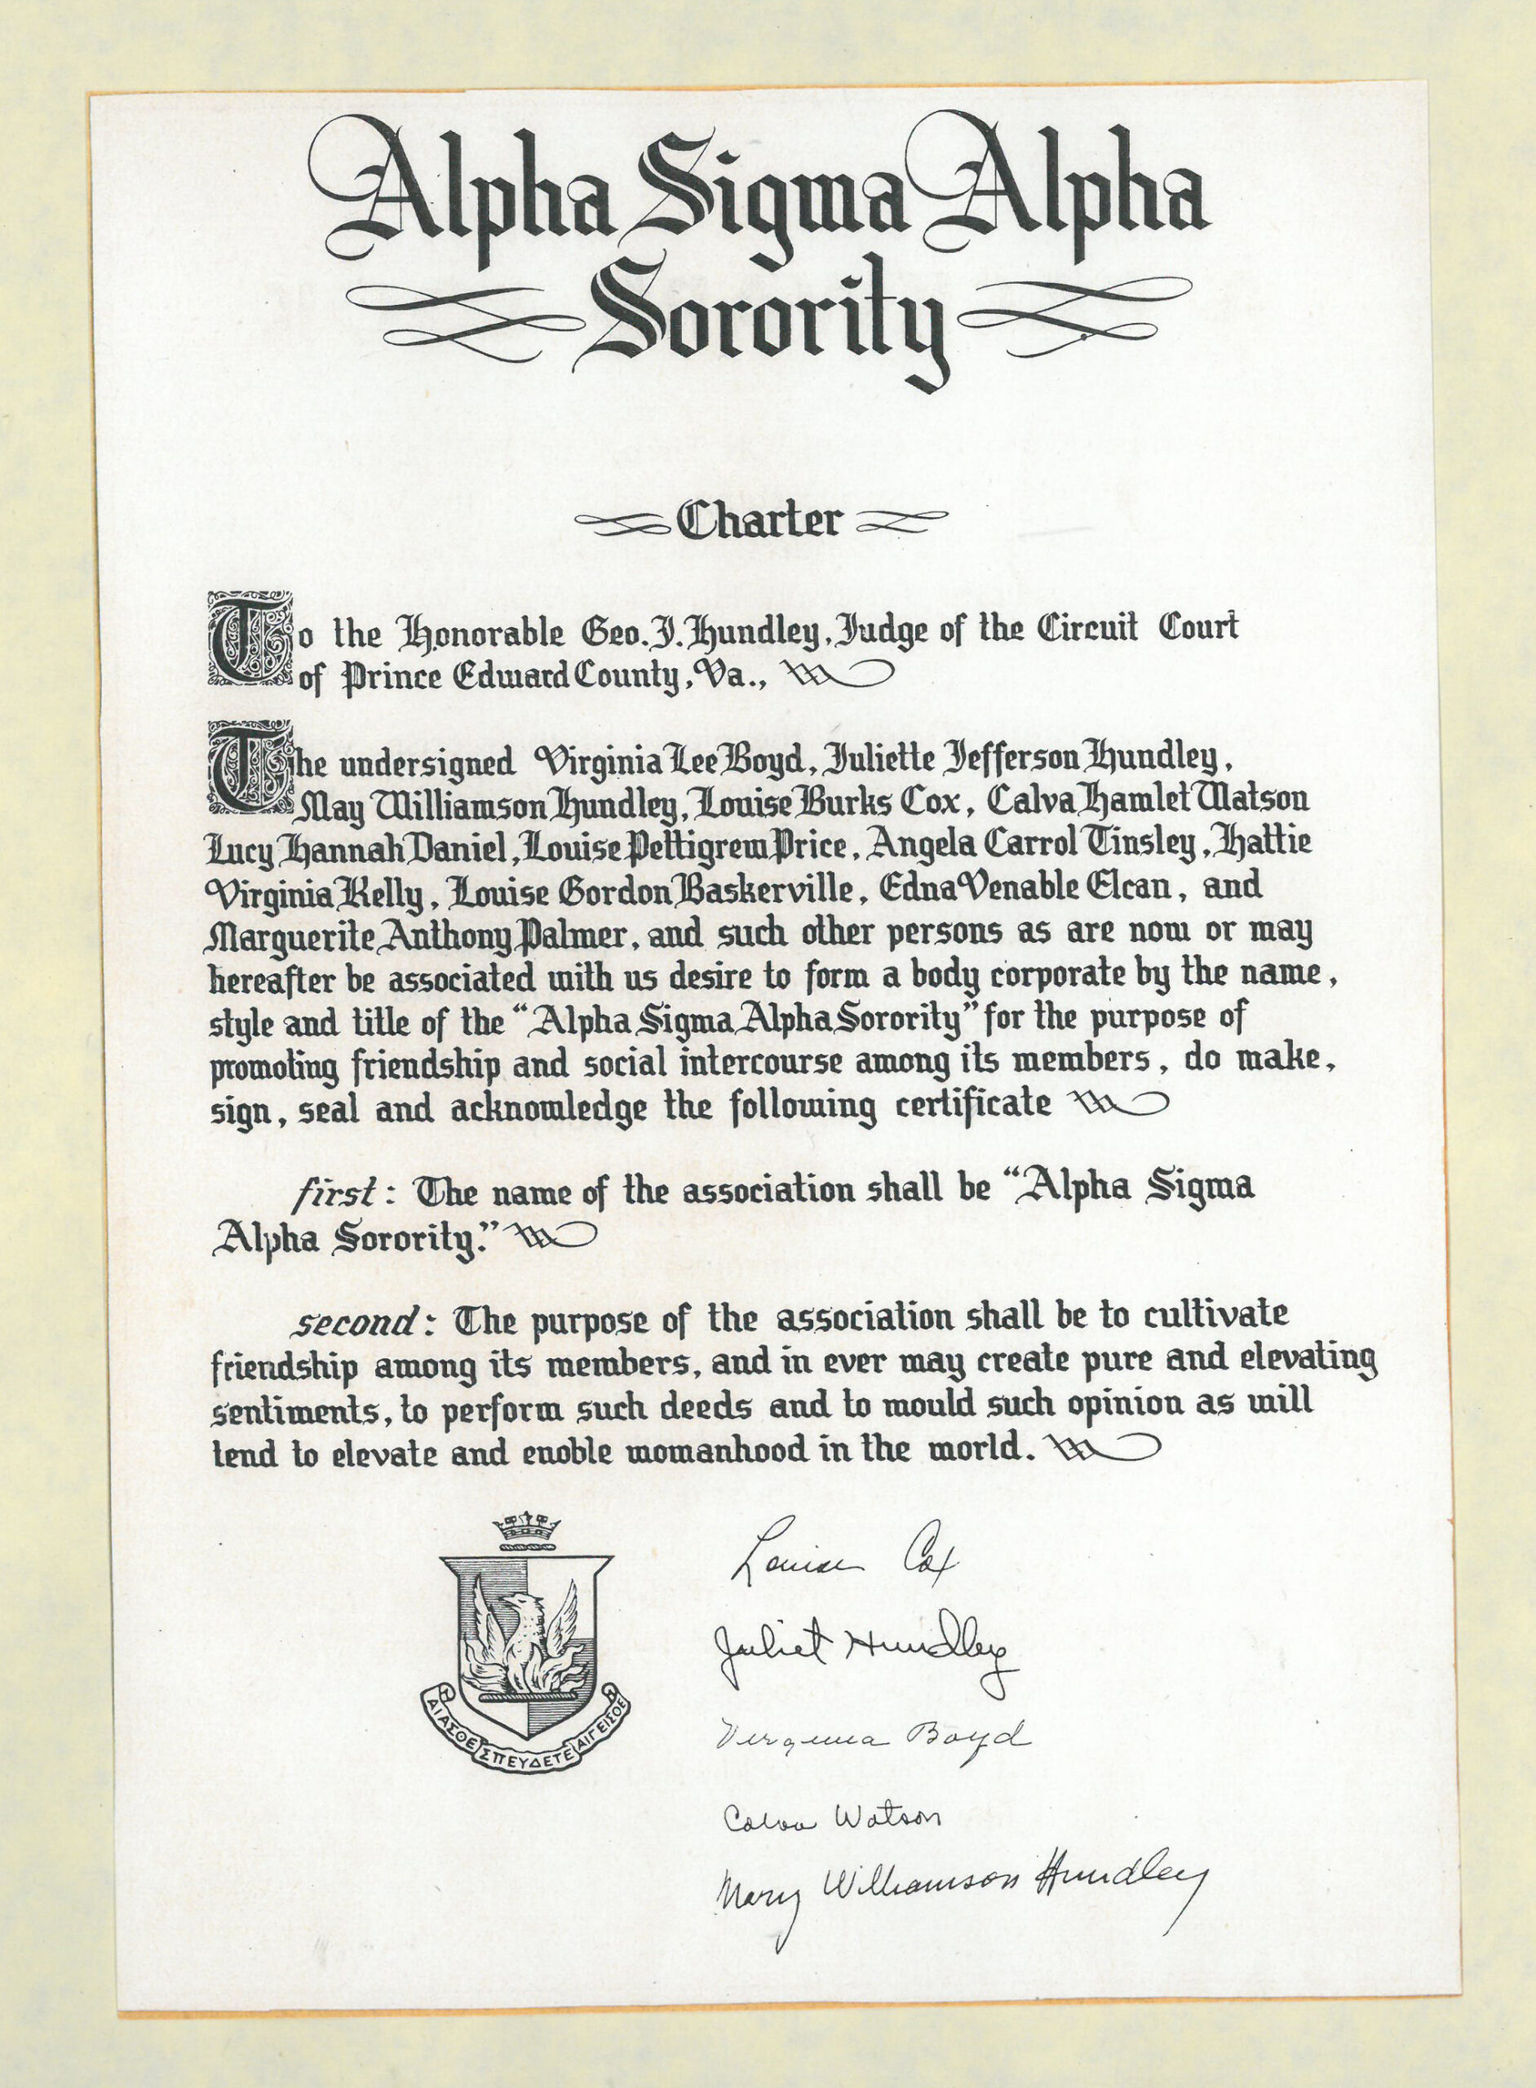 Alpha Sigma Alpha
Sorority
Charter
To the Honorable Geo. J. Hundley, Judge of the Circuit Court
of Prince Edward County, Va.,
The undersigned Virginia Lee Boyd, Juliette Jefferson Hundley,
May Williamson Hundley, Louise Burks Cox, Calva Hamlet Watson
Lucy Hannah Daniel, Louise Pettigrew Price, Angela Carrol Tinsley, Hattie
Virginia Kelly, Louise Gordon Baskerville, Edna Venable Elcan, and
Marguerite Anthony Palmer, and such other persons as are now or may
hereafter be associated with us desire to form a body corporate by the name,
style and title of the "Alpha Sigma Alpha Sorority" for the purpose of
promoting friendship and social intercourse among its members, do make,
sign, seal and acknowledge the following certificate
first: The name of the association shall be "Alpha Sigma
Alpha Sorority."
second: The purpose of the association shall be to cultivate
friendship among its members, and in ever may create pure and elevating
sentiments, to perform such deeds and to mould such opinion as will
tend to elevate and enoble womanhood in the world.
Louise Cox
Juliet Hundley
Virginia Boyd
Calva Watson
Mary Williamson Hundley
ΑΙΑΣΘΕ ΣΠΕΥΔΕΤΕ ΑΙΓΕΙΣΘΕ